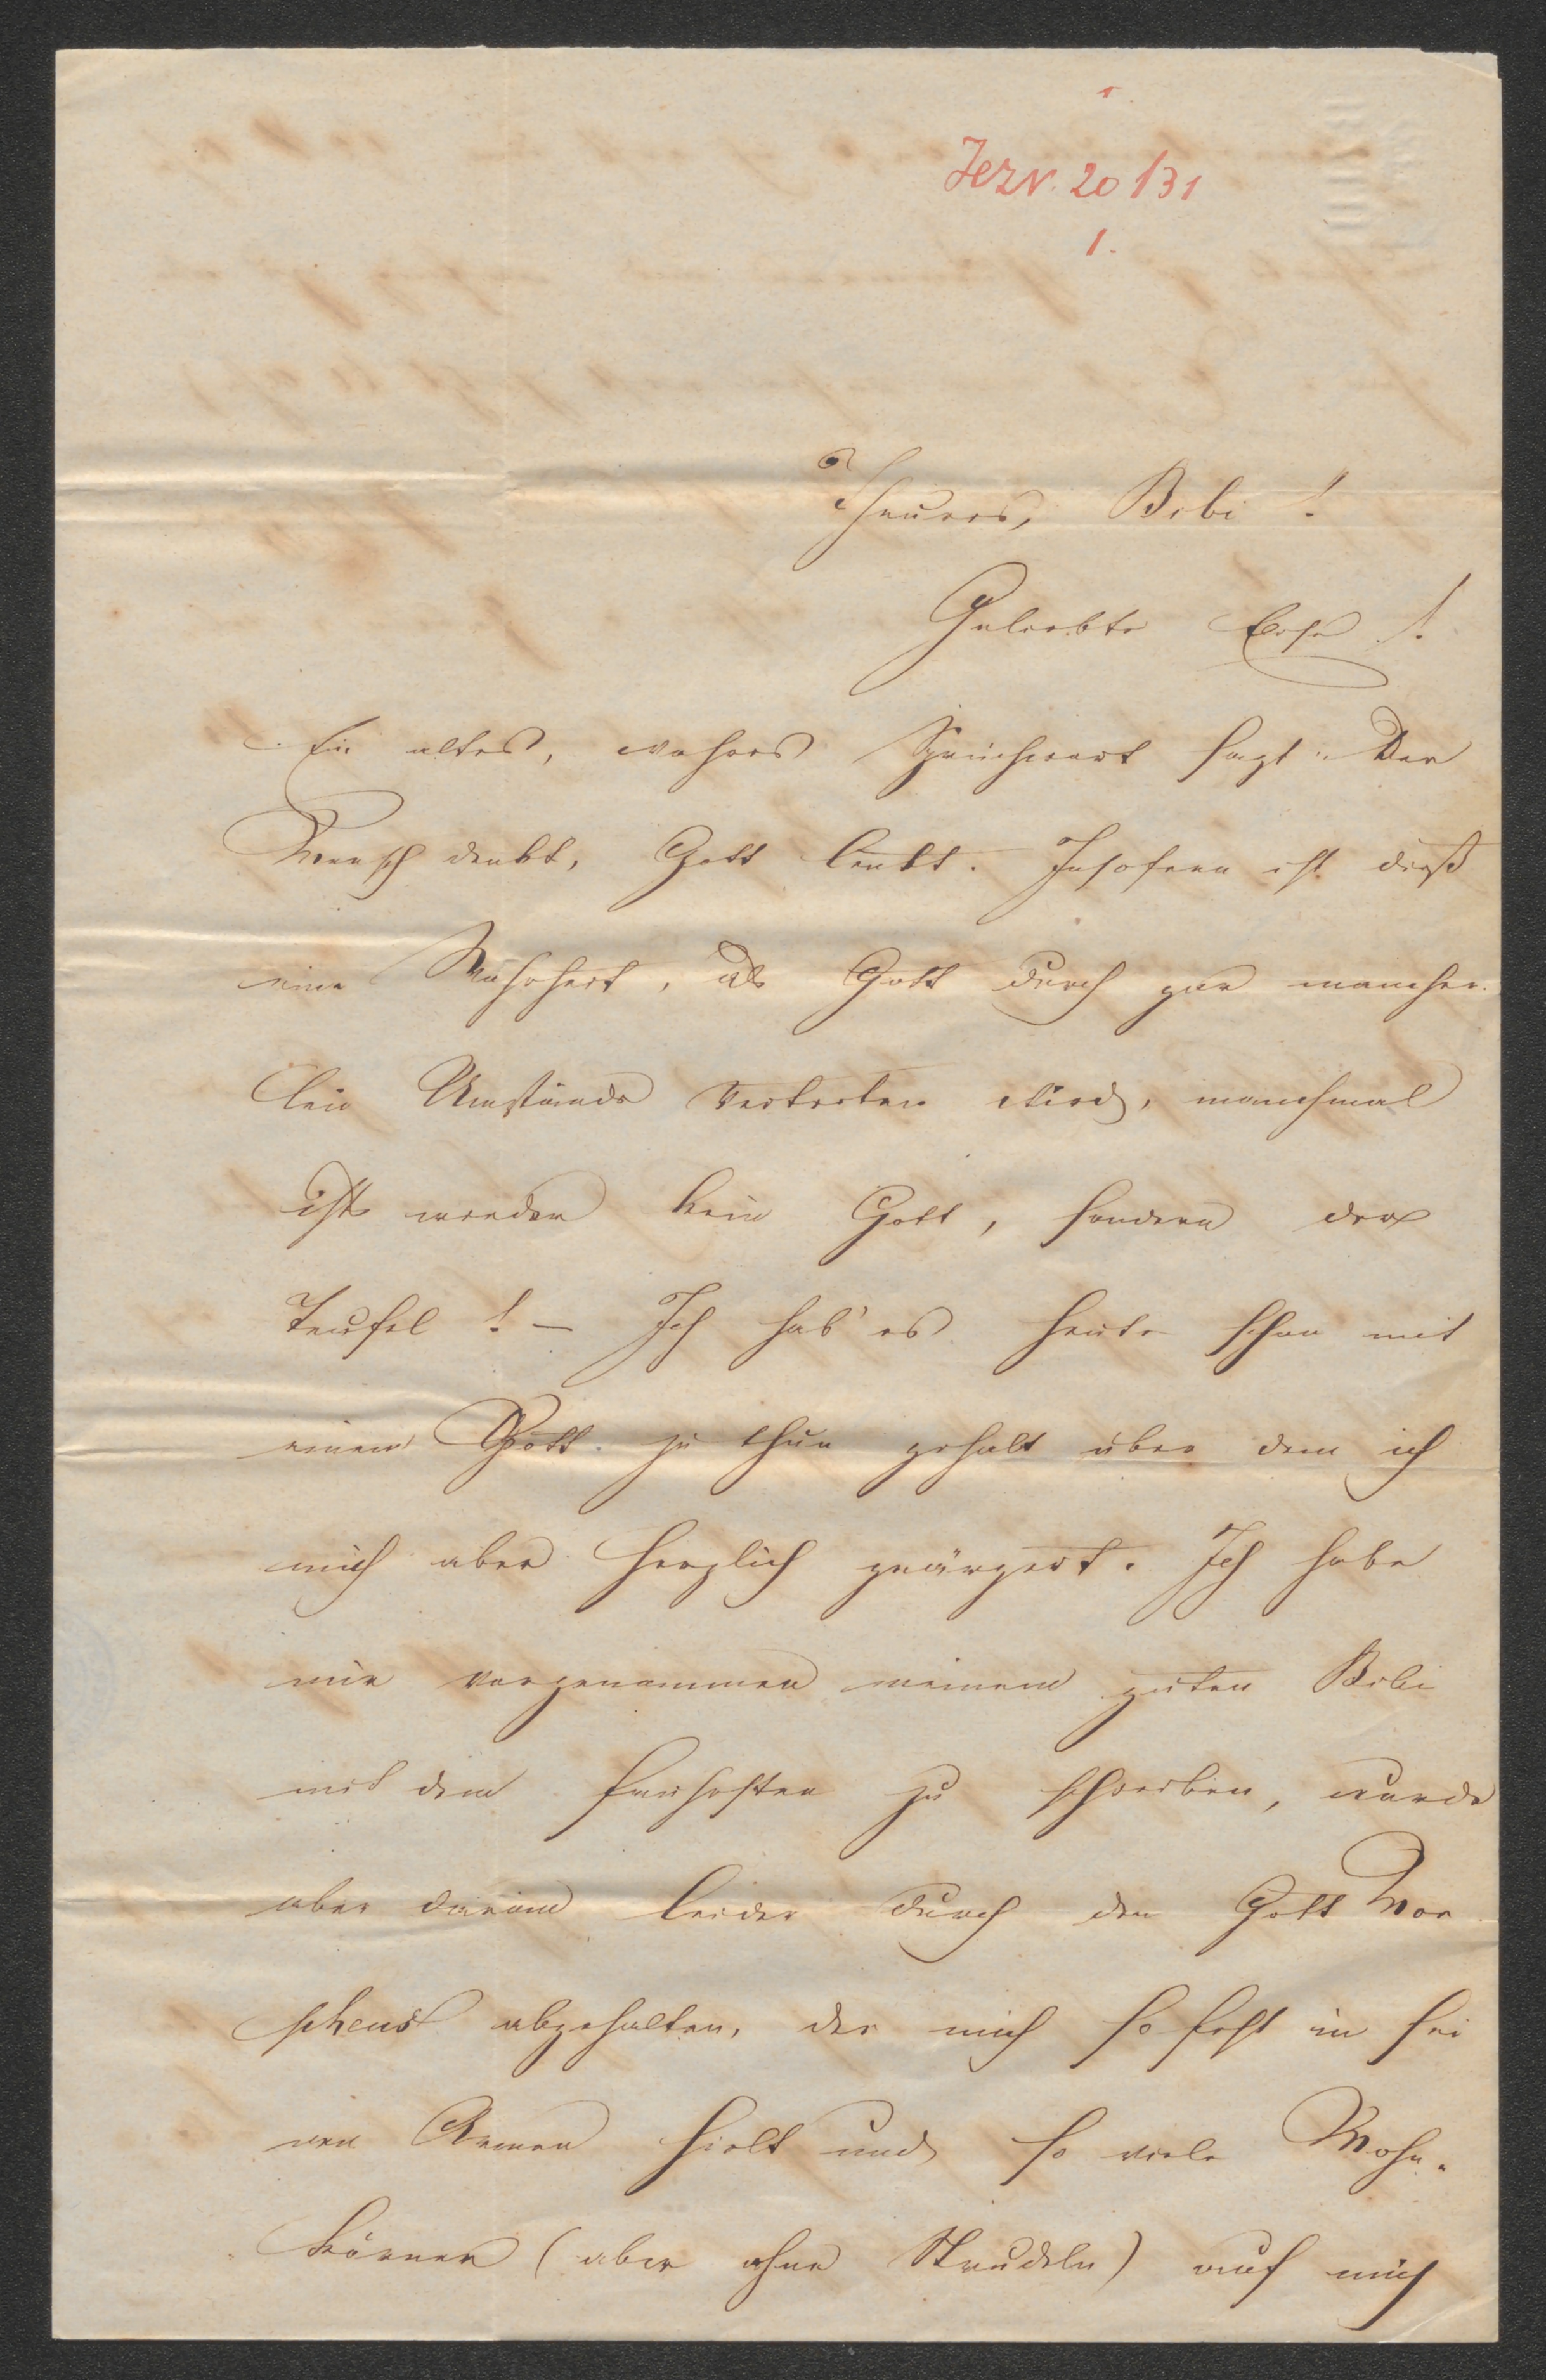 Jezv. 20/31
1.
Theures, Bibi!
Geliebte Ehe!
Ein altes, wahres Sprüchwort sagt: Der
Mensch denkt, Gott lenkt. Insofern ist dieß
eine Wahrheit, als Gott durch gar mancher
lei Umstände vertreten wird, manchmal
ists wieder kein Gott, sondern der
Teufel! – Ich hab' es heute schon mit
einem Gott zu thun gehabt über dem ich
mich aber herzlich geärgert. Ich habe
mir vorgenommen meinem guten Bibi
mit dem frühesten zu schreiben, wurde
aber daran leider durch den Gott Mor
pheus abgehalten, der mich so fest in sei
nen Armen hielt und so viele Mohn-
körner (aber ohne Strudeln) auf mich